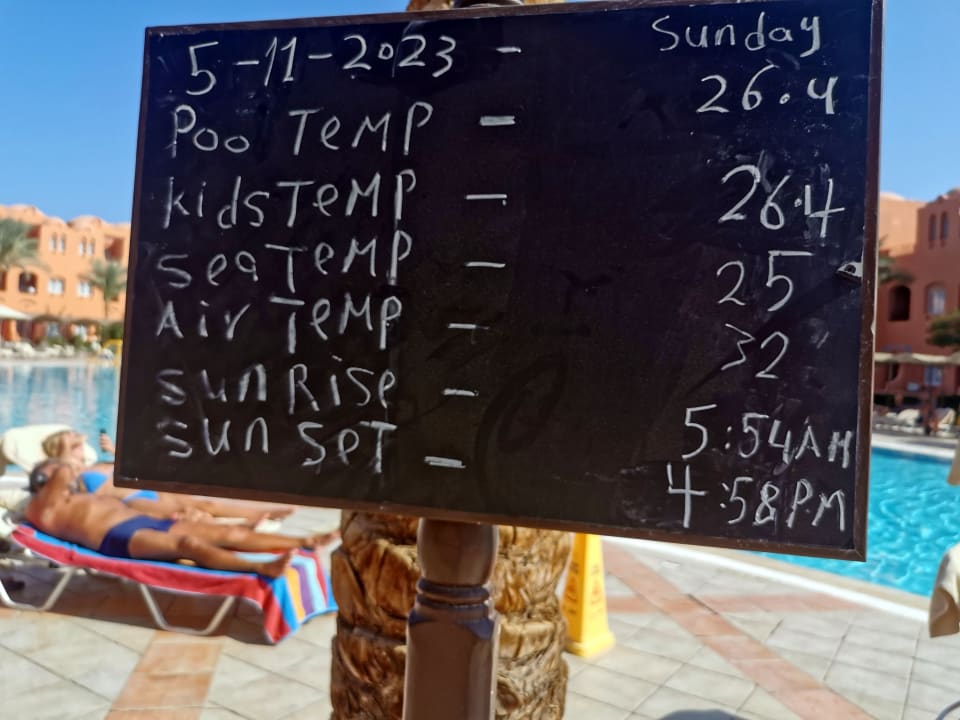 5-11-2023 - Sunday
Poo TeMP - 26.4
kids TeMP - 26.4
sea TeMP - 25
Air TeMP - 32
sunRise - 5:54AM
sun seT - 4:58PM